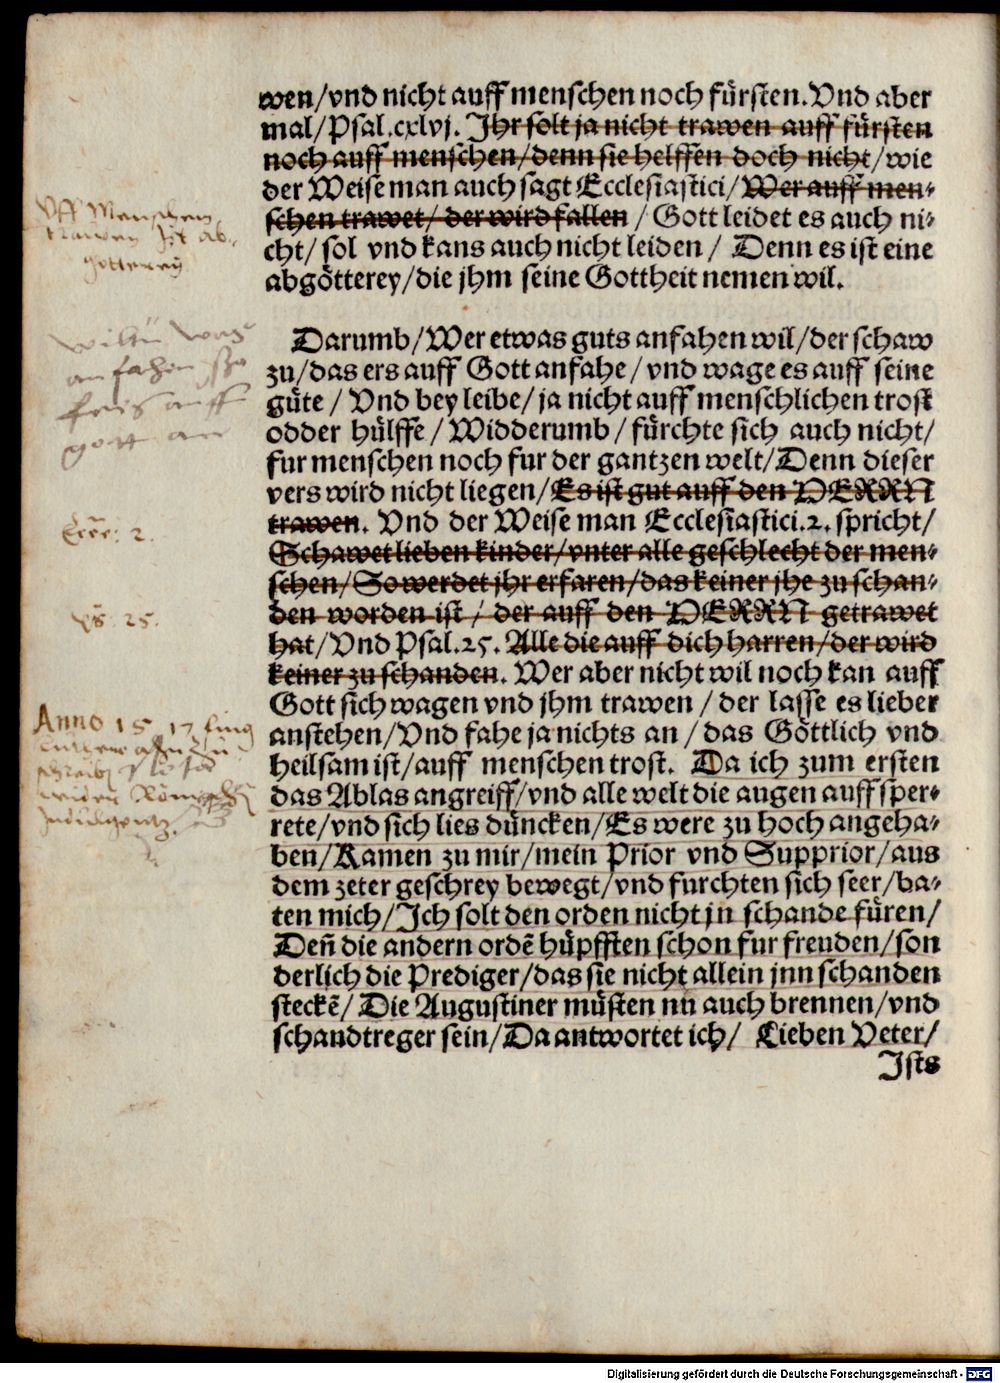 wen/vnd nicht auff menschen noch fürsten. Vnd aber
mal/Psal.cxlvj. Jhr solt ja nicht trawen auff fürsten
noch auff menschen/denn sie helffen doch nicht/wie
der Weise man auch sagt Ecclesiastici/Wer auff men-
schen trawet/der wird fallen/Gott leidet es auch ni-
cht/sol vnd kans auch nicht leiden/Denn es ist eine
abgötterey/die jhm seine Gottheit nemen wil.
Vff Menschen
trawen Ist ab-
götterey
Darumb/Wer etwas guts anfahen wil/der schaw
zu/das ers auff Gott anfahe/vnd wage es auff seine
güte/Vnd bey leibe/ja nicht auff menschlichen trost
odder hülffe/Widderumb/fürchte sich auch nicht/
fur menschen noch fur der gantzen welt/Denn dieser
vers wird nicht liegen/Es ist gut auff den HERRN
trawen. Vnd der Weise man Ecclesiastici.2. spricht/
Schawet lieben kinder/vnter alle geschlecht der men-
schen/So werdet jhr erfaren/das keiner jhe zu schan-
den worden ist/der auff den HERRN getrawet
hat/Vnd Psal.25. Alle die auff dich harren/der wird
keiner zu schanden. Wer aber nicht wil noch kan auff
Gott sich wagen vnd jhm trawen/der lasse es lieber
anstehen/Vnd fahe ja nichts an/das Göttlich vnd
heilsam ist/auff menschen trost. Da ich zum ersten
das Ablas angreiff/vnd alle welt die augen auffsper-
rete/vnd sich lies düncken/Es were zu hoch angeha-
ben/Kamen zu mir/mein Prior vnd Supprior/aus
dem zeter geschrey bewegt/vnd furchten sich seer/ba-
ten mich/Jch solt den orden nicht jn schande füren/
Deñ die andern ordẽ hüpfften schon fur freuden/son
derlich die Prediger/das sie nicht allein jnn schanden
steckẽ/Die Augustiner müsten nu auch brennen/vnd
schandtreger sein/Da antwortet ich/Lieben Veter/
Jsts
wiltu was
anfahen so
auff
gott an
2.
25.
Anno 1517 fing
Digitalisierung gefördert durch die Deutsche Forschungsgemeinschaft - DFG